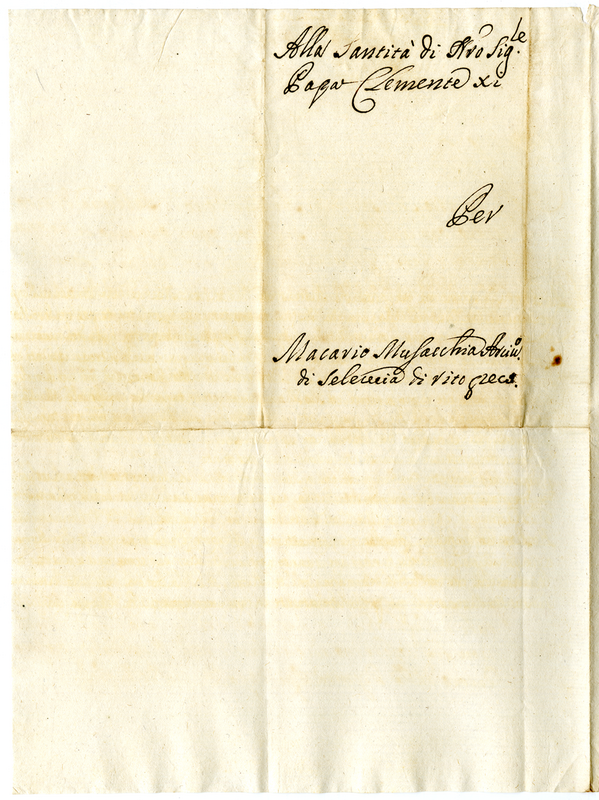 Alla Santità di Nro Sig.le
Papa Clemente xi
Per
Macario Musacchia Arciuo.
di Seleucia di rito greco.